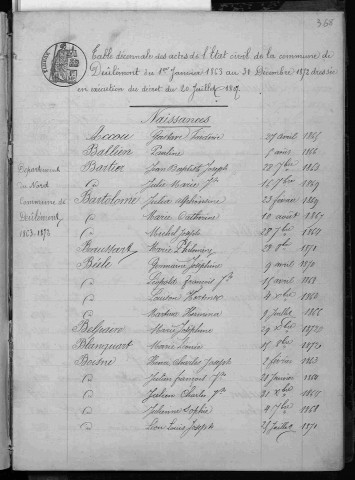 366
Table décennale des actes de l'Etat civil de la commune de
Deûlémont du 1er Janvier 1863 au 31 Décembre 1872 dressée
en exécution du décret du 20 Juillet 1807
Naissances
Département
du Nord
Commune de
Deûlémont
1863-1872
Accou Gustave 27 avril 1865
Ballieu Pauline 1866
Bartier Jean Baptiste Joseph 28 7bre 1863
id Julie Marie Jh 16 7bre 1869
Bartolomé Julie Alphonsine 23 février 1869
id Marie Catherine 10 août 1867
id Michel Joseph 1864
Beaussart Marie Philomène 1870
Bièle Germaine Joséphine 9 avril 1870
id Léopold François Jh 15 avril 1863
id Louise Hortense 4 Xbre 1868
id Martine 9 Juillet 1866
Marie Joséphine 1872
Blanquart Marie 15 1870
Boisne Henri Charles Joseph 2 février 1863
id Julien François Jh 28 Janvier 1864
id Julien Charles Jh 21 Xbre 1864
id Julienne Sophie 4 7bre 1868
id Léon Louis Joseph 25 Juillet 1870